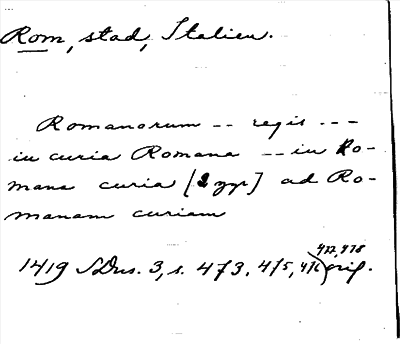 Rom, stad, Italien.
Romanorum -- regis ---
in curia Romana -- in Ro-
mana curia [2 ggr] ad Ro-
manam curiam
477, 478
1419 SDns. 3, s. 473, 475, 476, orig.